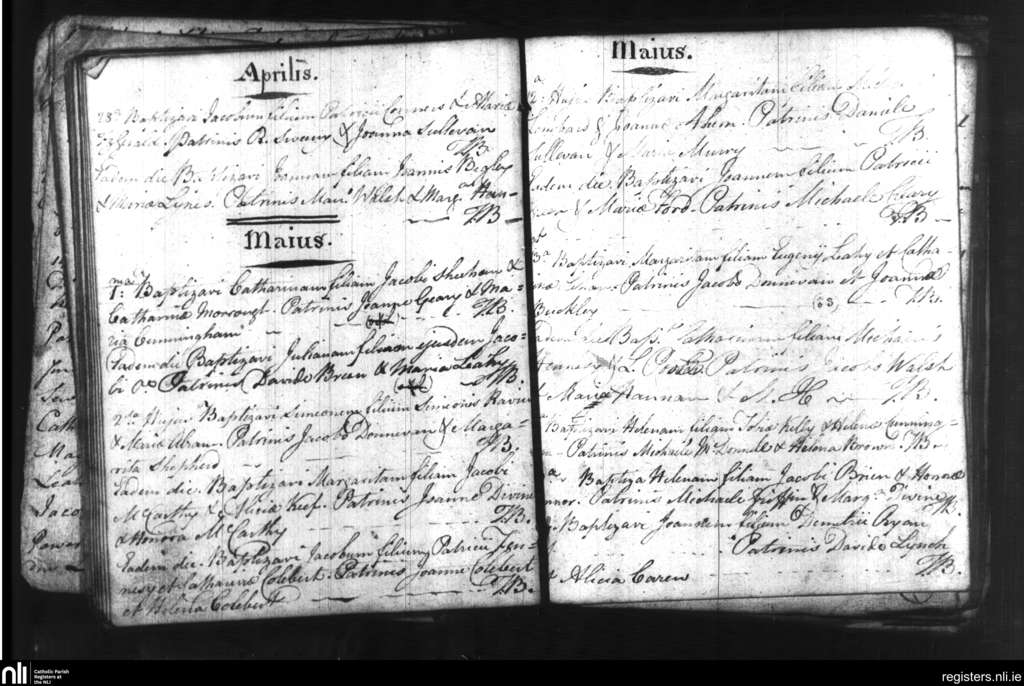 Aprilis.
28ª Baptizavi Jacobum filium Patricii Conners & Maria
FzGerald. Patrinis R. Sweeny & Joanna Sullevan
TB.
Eadem die Baptizavi Joannam filiam Joannis Begley
& Maria Lynes. Patrinis Mau: Walsh & Marg. Han-
TB
Maius.
1: ma Baptizavi Catharinam filiam Jacobi Sheehan &
Catharina Morrough. Patrinis Joanne Geary & Ma-
ria Cunningham TB.
Eadem die Baptizavi Julianam filiam ejusdem Jaco-
bi Patrinis Davide Brien & Maria Leahy
TB.
2da Hujus. Baptizavi Simeonem filium Simeonis
& Maria Patrinis Jacobo Donnevan & Marga-
rita Shepherd TB.
Eadem die. Baptizavi Margaritam filiam Jacobi
McCarthy & Alicia Keef. Patrinis Joanne Divine
& Honora McCarthy TB.
Eadem die. Baptizavi Jacobum filium Patricii
nesy et Catharina Colebert. Patrinis Joanne Colebert
et Helena Colebert TB.
Maius.
2ª: Hujus Baptizavi Margaritam filiam
& Joanna Ahern. Patrinis Daniele
Sullevan & Maria Murry TB.
Eadem die. Baptizavi Joannem filium Patricii
& Maria Ford. Patrinis Michaele
TB
3ª Baptizavi Margaritam filiam Eugenij Leahy et Catha-
Patrinis Jacobo Donnevan et Joanna
Buckley TB.
Eadem die Bap. Catharinam filiam Michaelis
& Patrinis Jacobo Walsh
& Maria Hannan TB.
Baptizavi Helenam filiam Kelly & Helena Cunning-
Patrinis Michaele McDonnele & Helena Brown. TB
Baptiza Helenam filiam Jacobi Brien & Honora
Connor. Patrinis Michaele Griffin & Marg. Divine TB.
Baptizavi Joannem filium Demitrii Ryan
Patrinis Davide Lynch
et Alicia Caren TB.
nli
Catholic Parish
Registers at
the NLI
registers.nli.ie